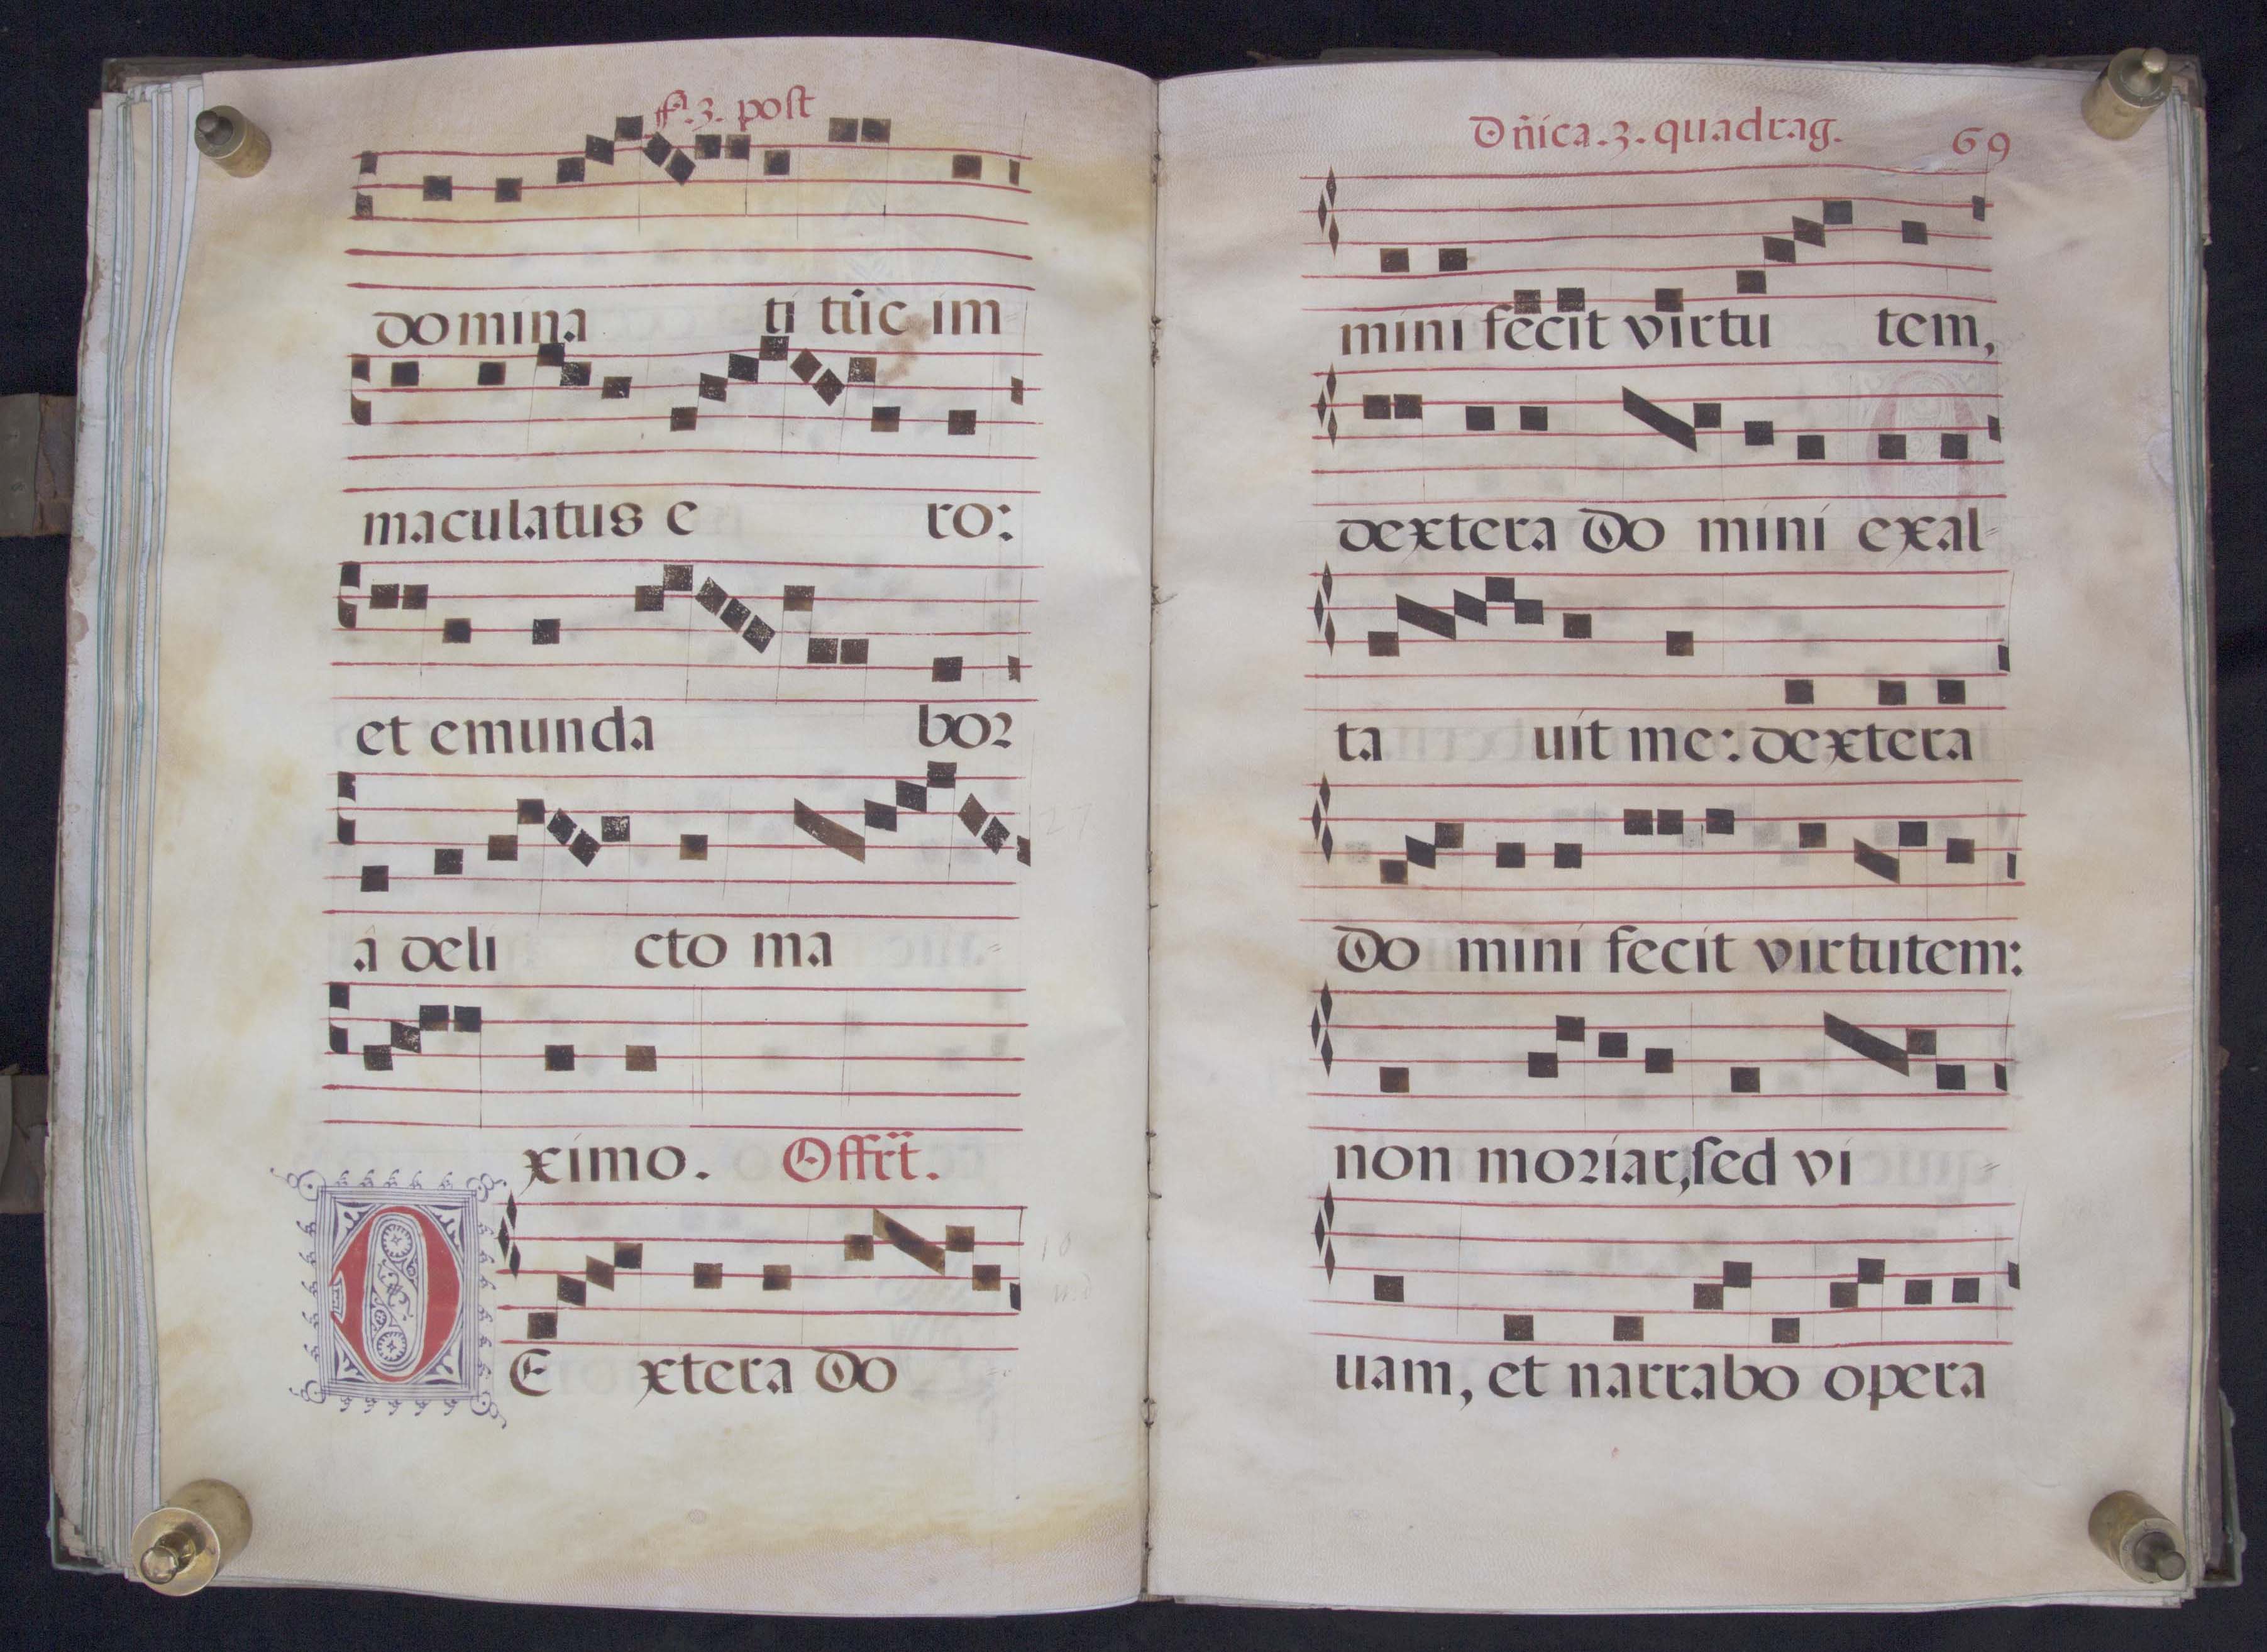 ff.3. post
domina ti tūc im
maculatus e ro:
et emunda bor
à deli cto ma
ximo. Offrt.
DE xtera Do
Dñica.3.quadrag. 69
mini fecit virtu tem,
dextera Do mini exal-
ta uit me: dextera
Do mini fecit virtutem:
non moriar, sed vi
uam, et narrabo opera